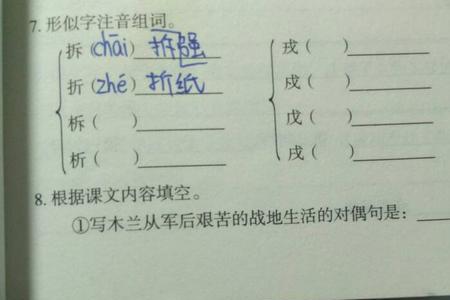 7. 形似字注音组词。
拆 (chāi) 拆强 戎 ( )
折 (zhé) 折纸 戍 ( )
柝 ( ) 戊 ( )
析 ( ) 戌 ( )
8. 根据课文内容填空。
①写木兰从军后艰苦的战地生活的对偶句是：